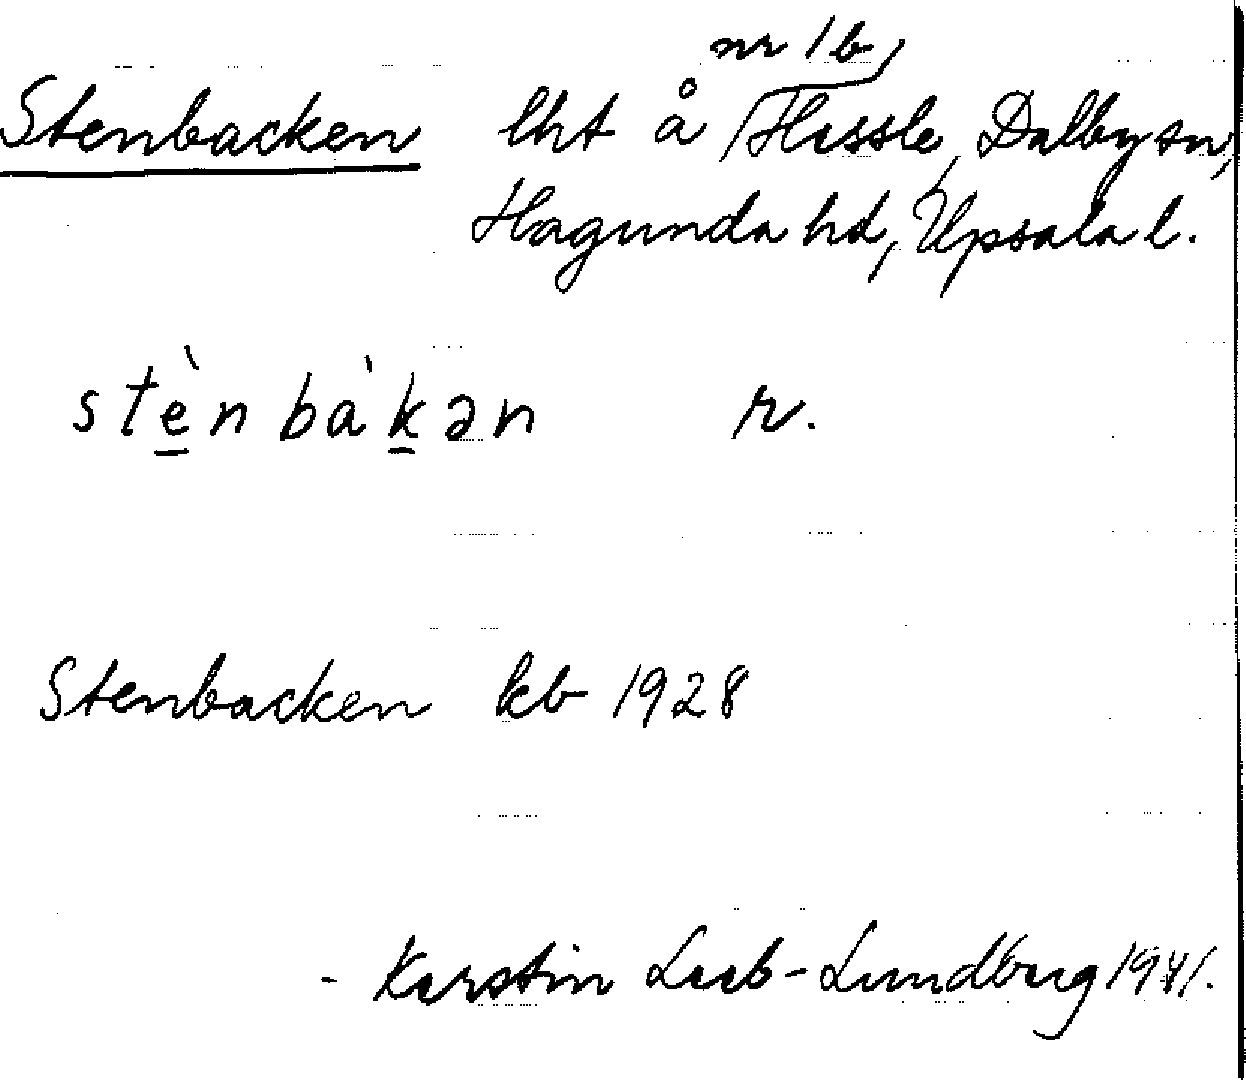 nr 1b,
Stenbacken lht å Hässle, Dalby sn,
Hagunda hd, Upsala l.
stè̠nbàk̠ən r.
Stenbacken kb 1928
- Kerstin Leeb-Lundberg 1941.